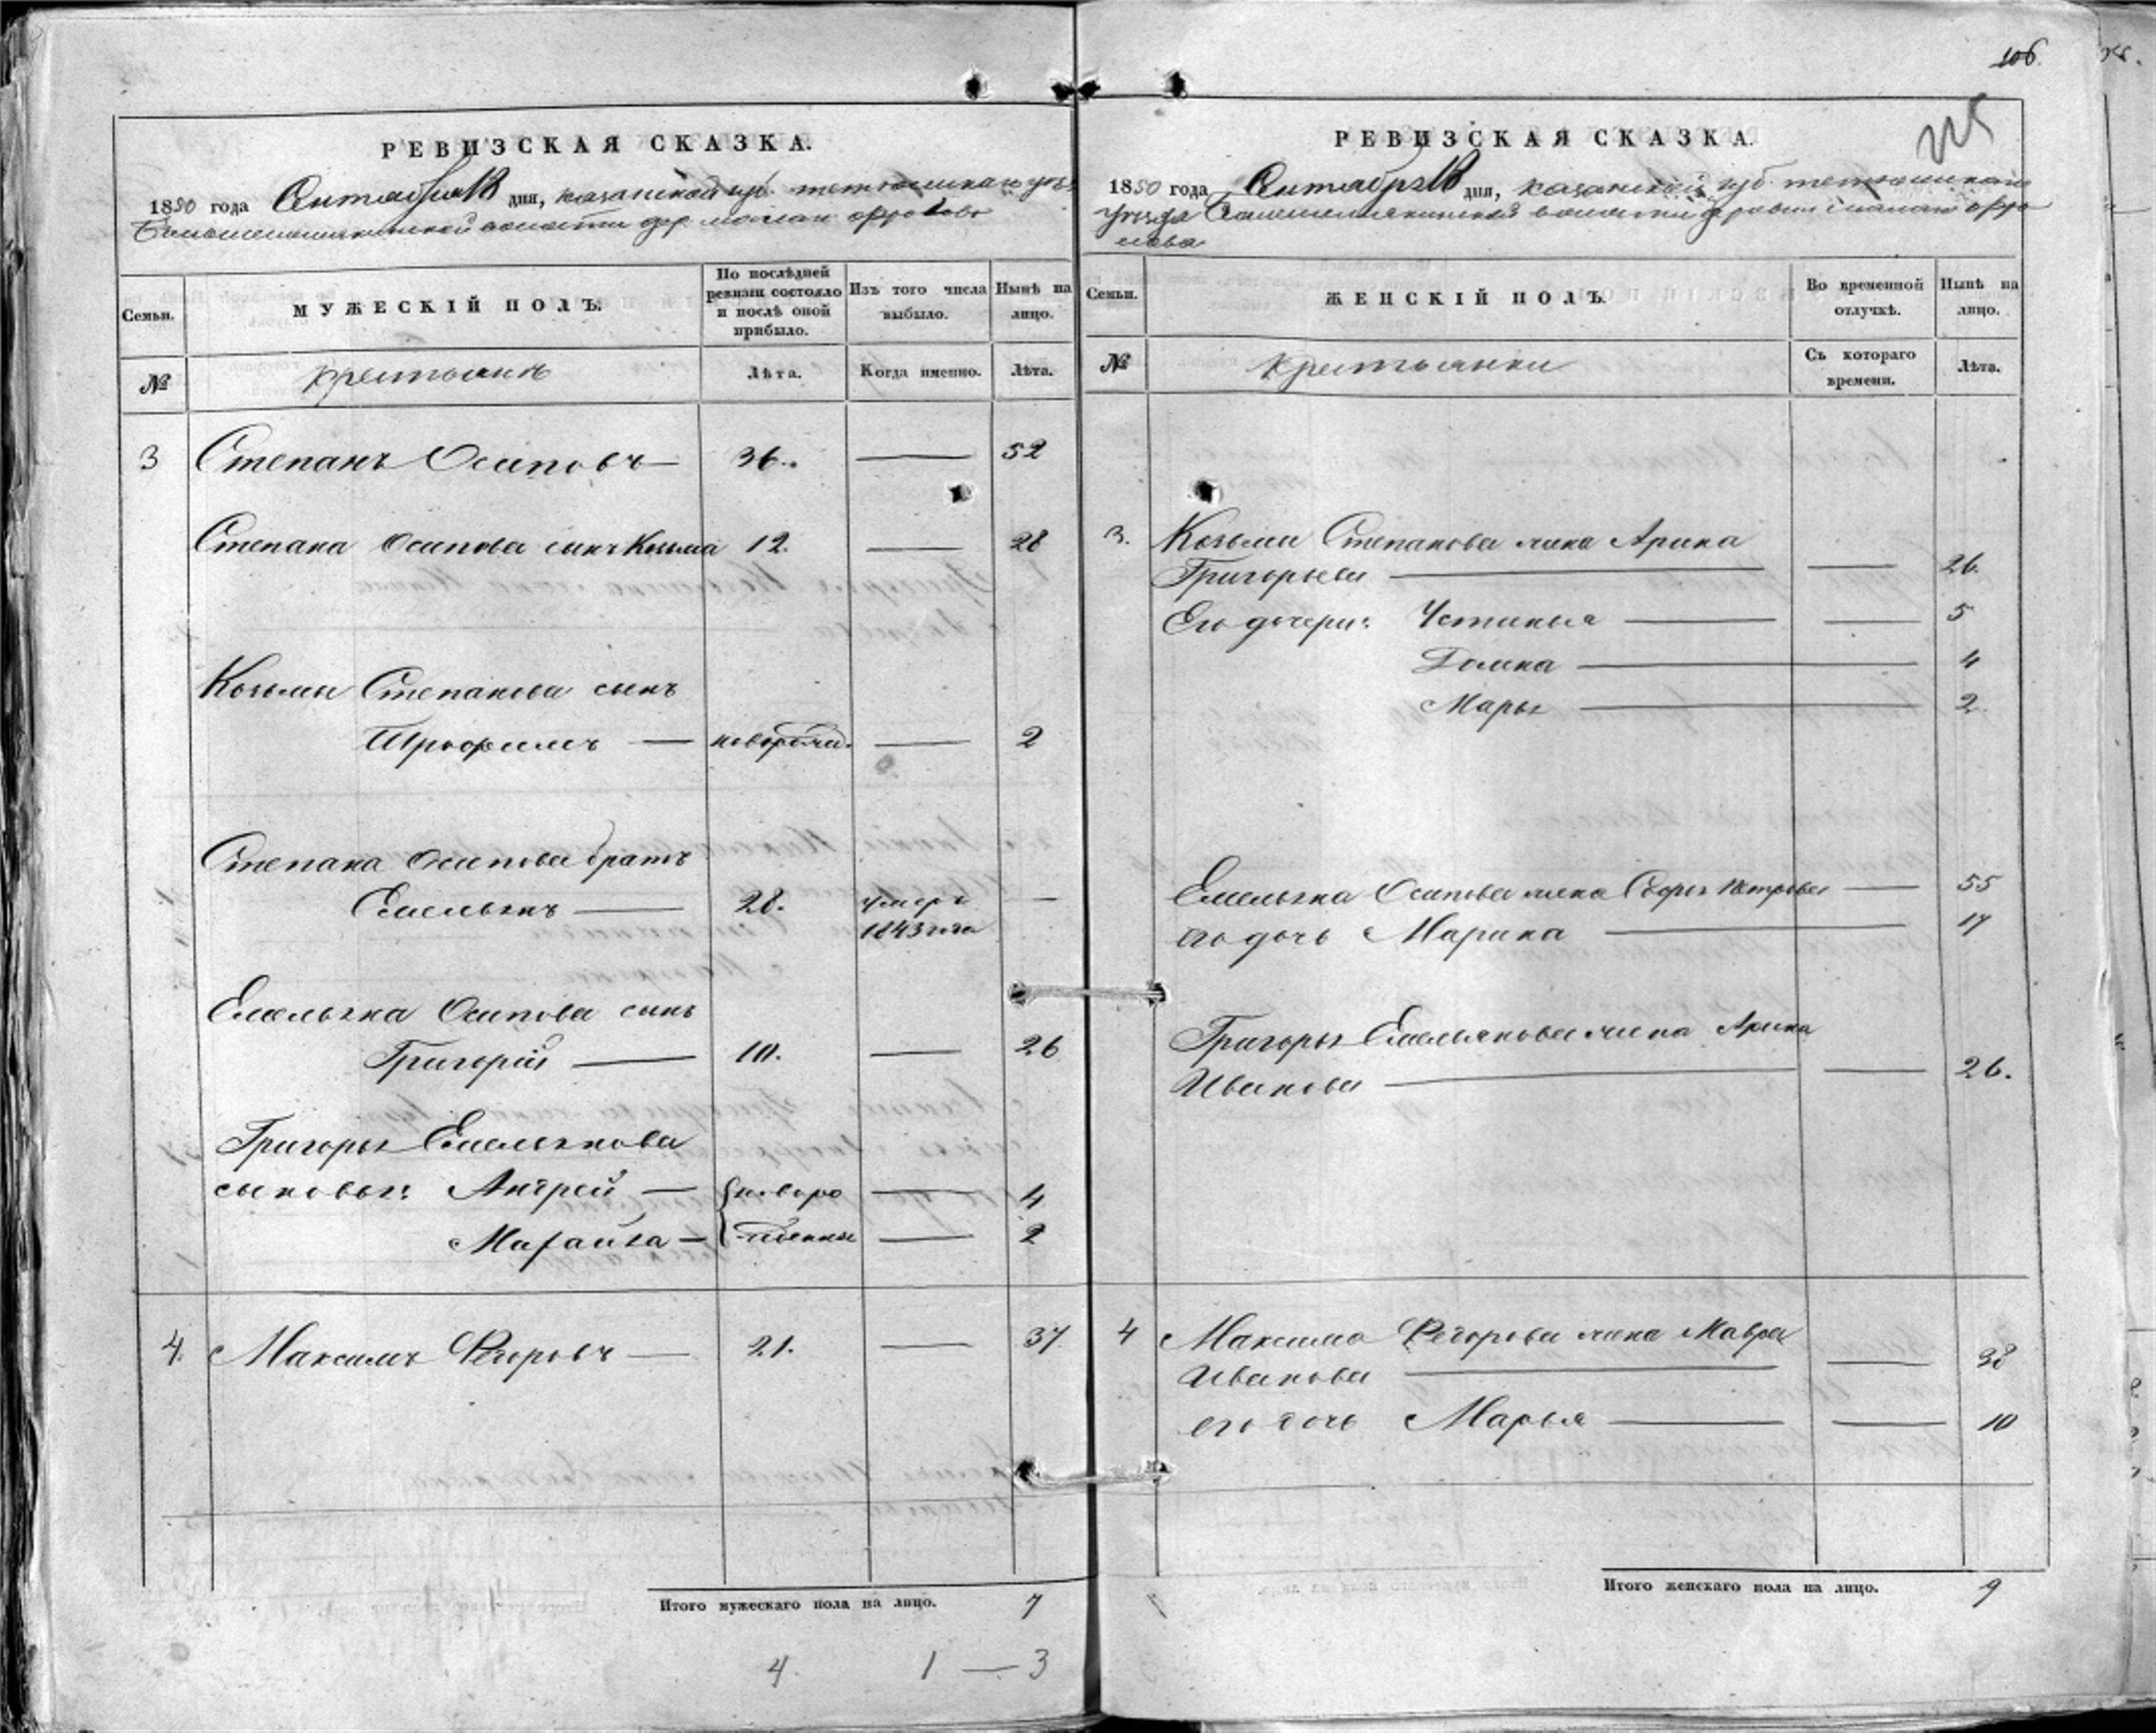 106.
РЕВИЗСКАЯ СКАЗКА.
1850 года Октября дня, казанской губ. тетюшскаго уез.
волости дер. малаго Фролово
Семьи.
МУЖЕСКІЙ ПОЛЪ.
По послѣдней ревизіи состояло и послѣ оной прибыло.
Изъ того числа выбыло.
Нынѣ на лицо.
№
крестьянъ
Лѣта.
Когда именно.
Лѣта.
3 Степанъ Осиповъ — 36. — 52
Степана Осипова сынъ Козьма 12. — 28
Козьмы Степанова сынъ
Трофимъ — новорожд. — 2
Степана Осипова братъ
Емельянъ — 28. умеръ —
1843 года
Емельяна Осипова сынъ
Григорій — 10. — 26
Григорья Емельянова
сыновья: Андрей — новоро — 4
— жденны — 2
4. Максимъ Федоровъ — 21. — 37
Итого мужескаго пола на лицо. 7
4. 1 — 3
РЕВИЗСКАЯ СКАЗКА.
1850 года Октября дня, казанской губ. тетюшскаго
уезда волости деревни малаго Фро
лова
Семьи.
ЖЕНСКІЙ ПОЛЪ.
Во временной отлучкѣ.
Нынѣ на лицо.
№
крестьянки
Съ котораго времени.
Лѣта.
3. Козьмы Степанова жена Арина
Григорьева — — 26.
Его дочери: Устинья — — 5
Домна — 4
Марья — 2
Емельяна Осипова жена Петрова — 55
его дочь Марина — 17
Григорья Емельянова жена Арина
Иванова — — 26.
4 Максима Федорова жена Мавра
Иванова — — 38
его дочь Марья — — 10
Итого женскаго пола на лицо. 9